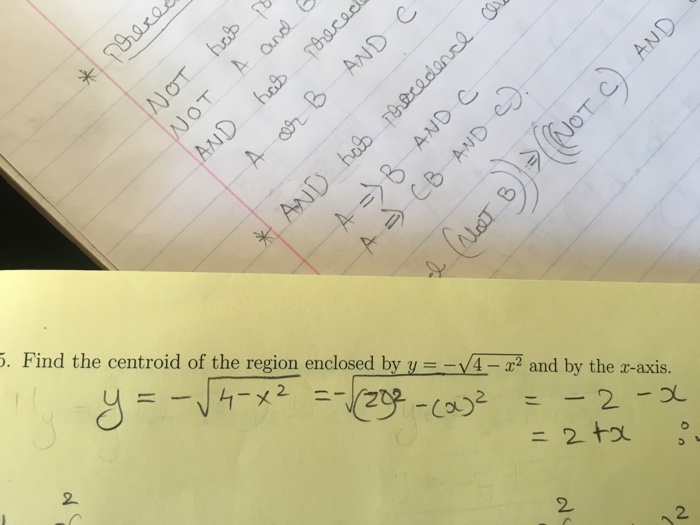 *
NOT has
NOT A and B
AND has
A or B AND C
* AND has precedence
A => B AND C
A => (B AND C).
(NOT B)) => ((NOT C) AND
5. Find the centroid of the region enclosed by y = −√4 − x² and by the x-axis.
y = -√4-x² = -√(2)² -(x)² = - 2 - x
= 2 + x
2
2
2